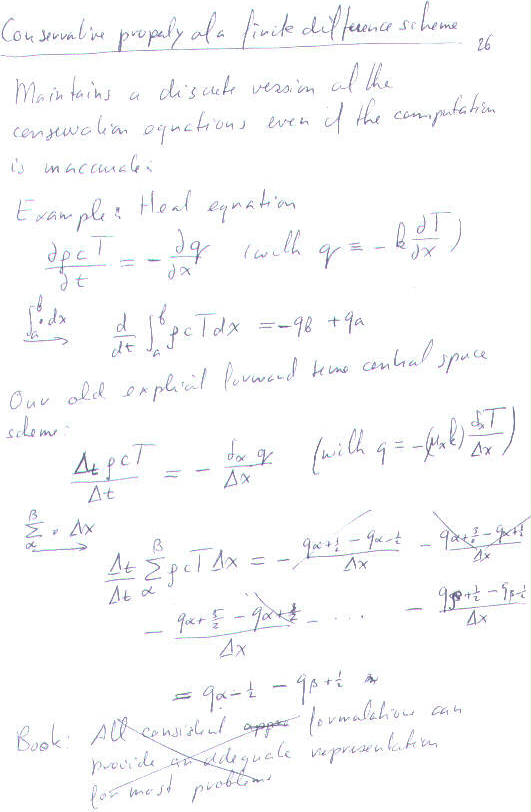 Conservative property of a finite difference scheme
26
Maintains a discrete version of the
conservation equations even if the computation
is inaccurate:
Example: Heat equation
∂ρcT/∂t = - ∂q/∂x (with q ≡ - k ∂T/∂x)
∫_a^b · dx → d/dt ∫_a^b ρcT dx = -q_b + q_a
Our old explicit forward time central space
scheme:
Δ_t ρcT/Δt = - δ_x q/Δx (with q = -(μ_x k) δ_x T/Δx)
Σ_α^β · Δx → Δt/Δt Σ_α^β ρcT Δx = - (q_{α+1/2} - q_{α-1/2})/Δx - (q_{α+3/2} - q_{α+1/2})/Δx
- (q_{α+5/2} - q_{α+3/2})/Δx - .... - (q_{β+1/2} - q_{β-1/2})/Δx
= q_{α-1/2} - q_{β+1/2}
Book: All consistent formulations can
provide an adequate representation
for most problems